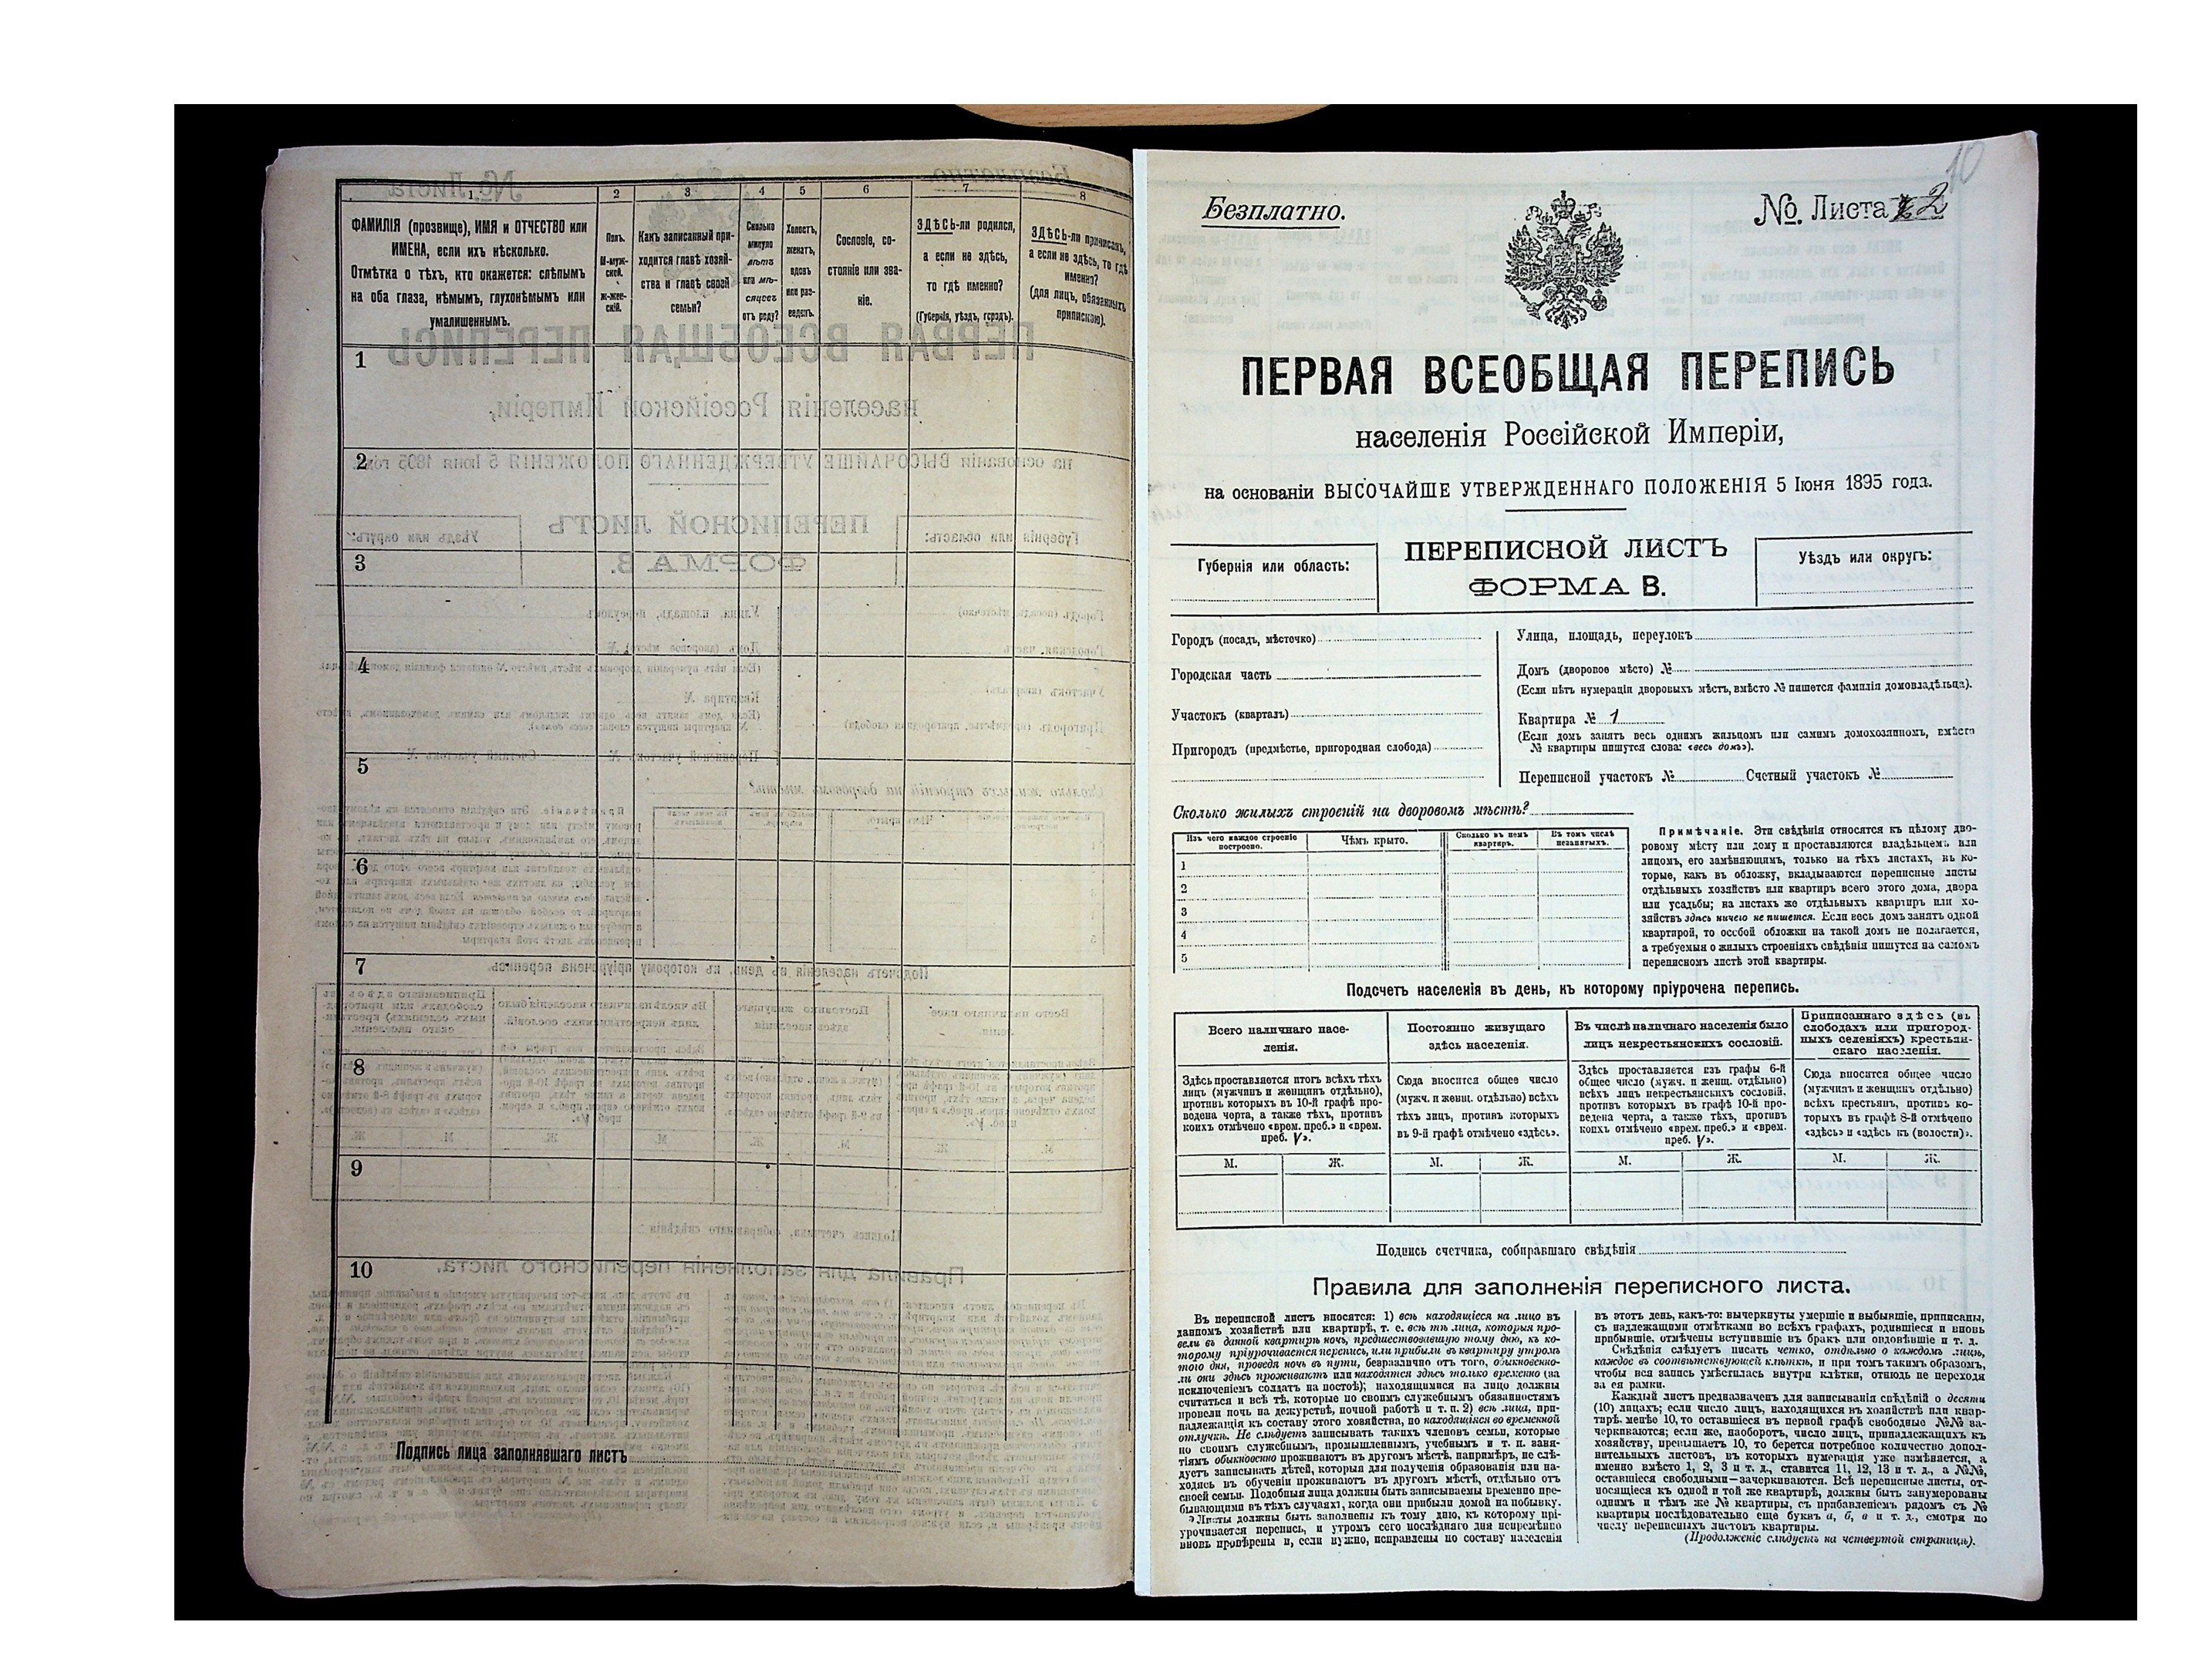 1
2
3
4
5
6
7
8
ФАМИЛІЯ (прозвище), ИМЯ и ОТЧЕСТВО или
ИМЕНА, если ихъ нѣсколько.
Отмѣтка о тѣхъ, кто окажется: слѣпымъ
на оба глаза, нѣмымъ, глухонѣмымъ или
умалишеннымъ.
Полъ.
М-муж-
ской.
ж-жен-
скій.
Какъ записанный при-
ходится главѣ хозяй-
ства и главѣ своей
семьи?
Сколько
минуло
лѣтъ
или мѣ-
сяцевъ
отъ роду?
Холостъ,
женатъ,
вдовъ
или раз-
веденъ.
Сословіе, со-
стояніе или зва-
ніе.
ЗДѢСЬ-ли родился,
а если не здѣсь,
то гдѣ именно?
(Губернія, уѣздъ, городъ).
ЗДѢСЬ-ли приписанъ,
а если не здѣсь, то гдѣ
именно?
(для лицъ, обязанныхъ
припискою).
1
2
3
4
5
6
7
8
9
10
Подпись лица заполнявшаго листъ
10
Безплатно.
№ Листа 2
ПЕРВАЯ ВСЕОБЩАЯ ПЕРЕПИСЬ
населенія Россійской Имперіи,
на основаніи ВЫСОЧАЙШЕ УТВЕРЖДЕННАГО ПОЛОЖЕНІЯ 5 Іюня 1895 года.
Губернія или область:
ПЕРЕПИСНОЙ ЛИСТЪ
ФОРМА В.
Уѣздъ или округъ:
Городъ (посадъ, мѣстечко)
Городская часть
Участокъ (кварталъ)
Пригородъ (предмѣстье, пригородная слобода)
Улица, площадь, переулокъ
Домъ (дворовое мѣсто) №
(Если нѣтъ нумераціи дворовыхъ мѣстъ, вмѣсто № пишется фамилія домовладѣльца).
Квартира № 1
(Если домъ занятъ весь однимъ жильцомъ или самимъ домохозяиномъ, вмѣсто
№ квартиры пишутся слова: «весь домъ»).
Переписной участокъ № Счетный участокъ №
Сколько жилыхъ строеній на дворовомъ мѣстѣ?
Изъ чего каждое строеніе
построено.
Чѣмъ крыто.
Сколько въ немъ
квартиръ.
Въ томъ числѣ
незанятыхъ.
1
2
3
4
5
Примѣчаніе. Эти свѣдѣнія относятся къ цѣлому дво-
ровому мѣсту или дому и проставляются владѣльцемъ или
лицомъ, его замѣняющимъ, только на тѣхъ листахъ, въ ко-
торые, какъ въ обложку, вкладываются переписные листы
отдѣльныхъ хозяйствъ или квартиръ всего этого дома, двора
или усадьбы; на листахъ же отдѣльныхъ квартиръ или хо-
зяйствъ здѣсь ничего не пишется. Если весь домъ занятъ одной
квартирой, то особой обложки на такой домъ не полагается,
а требуемыя о жилыхъ строеніяхъ свѣдѣнія пишутся на самомъ
переписномъ листѣ этой квартиры.
Подсчетъ населенія въ день, къ которому пріурочена перепись.
Всего наличнаго насе-
ленія.
Постоянно живущаго
здѣсь населенія.
Въ числѣ наличнаго населенія было
лицъ некрестьянскихъ сословій.
Приписаннаго здѣсь (въ
слободахъ или пригород-
ныхъ селеніяхъ) крестьян-
скаго населенія.
Здѣсь проставляется итогъ всѣхъ тѣхъ
лицъ (мужчинъ и женщинъ отдѣльно),
противъ которыхъ въ 10-й графѣ про-
ведена черта, а также тѣхъ, противъ
коихъ отмѣчено «врем. преб.» и «врем.
преб. V».
Сюда вносится общее число
(мужч. и женщ. отдѣльно) всѣхъ
тѣхъ лицъ, противъ которыхъ
въ 9-й графѣ отмѣчено «здѣсь».
Здѣсь проставляется изъ графы 6-й
общее число (мужч. и женщ. отдѣльно)
всѣхъ лицъ некрестьянскихъ сословій,
противъ которыхъ въ графѣ 10-й про-
ведена черта, а также тѣхъ, противъ
коихъ отмѣчено «врем. преб.» и «врем.
преб. V».
Сюда вносится общее число
(мужчинъ и женщинъ отдѣльно)
всѣхъ крестьянъ, противъ ко-
торыхъ въ графѣ 8-й отмѣчено
«здѣсь» и «здѣсь къ (волости)».
М. Ж. М. Ж. М. Ж. М. Ж.
Подпись счетчика, собиравшаго свѣдѣнія
Правила для заполненія переписного листа.
Въ переписной листъ вносятся: 1) всѣ находящіеся на лицо въ
данномъ хозяйствѣ или квартирѣ, т. е. всѣ тѣ лица, которыя про-
вели въ данной квартирѣ ночь, предшествовавшую тому дню, къ ко-
торому пріурочивается перепись, или прибыли въ квартиру утромъ
того дня, проведя ночь въ пути, безразлично отъ того, обыкновенно-
ли они здѣсь проживаютъ или находятся здѣсь только временно (за
исключеніемъ солдатъ на постоѣ); находящимися на лицо должны
считаться и всѣ тѣ, которые по своимъ служебнымъ обязанностямъ
провели ночь на дежурствѣ, ночной работѣ и т. п. 2) всѣ лица, при-
надлежащія къ составу этого хозяйства, но находящіяся во временной
отлучкѣ. Не слѣдуетъ записывать такихъ членовъ семьи, которые
по своимъ служебнымъ, промышленнымъ, учебнымъ и т. п. заня-
тіямъ обыкновенно проживаютъ въ другомъ мѣстѣ, напримѣръ, не слѣ-
дуетъ записывать дѣтей, которыя для полученія образованія или на-
ходясь въ обученіи проживаютъ въ другомъ мѣстѣ, отдѣльно отъ
своей семьи. Подобныя лица должны быть записываемы временно пре-
бывающими въ тѣхъ случаяхъ, когда они прибыли домой на побывку.
Листы должны быть заполнены къ тому дню, къ которому прі-
урочивается перепись, и утромъ сего послѣдняго дня непремѣнно
вновь провѣрены и, если нужно, исправлены по составу населенія
въ этотъ день, какъ-то: вычеркнуты умершіе и выбывшіе, приписаны,
съ надлежащими отмѣтками во всѣхъ графахъ, родившіеся и вновь
прибывшіе, отмѣчены вступившіе въ бракъ или овдовѣвшіе и т. д.
Свѣдѣнія слѣдуетъ писать четко, отдѣльно о каждомъ лицѣ,
каждое въ соотвѣтствующей клѣткѣ, и при томъ такимъ образомъ,
чтобы вся запись умѣстилась внутри клѣтки, отнюдь не переходя
за ея рамки.
Каждый листъ предназначенъ для записыванія свѣдѣній о десяти
(10) лицахъ; если число лицъ, находящихся въ хозяйствѣ или квар-
тирѣ, менѣе 10, то оставшіеся въ первой графѣ свободные №№ за-
черкиваются; если же, наоборотъ, число лицъ, принадлежащихъ къ
хозяйству, превышаетъ 10, то берется потребное количество допол-
нительныхъ листовъ, въ которыхъ нумерація уже измѣняется, а
именно вмѣсто 1, 2, 3 и т. д., ставится 11, 12, 13 и т. д., а №№,
оставшіеся свободными—зачеркиваются. Всѣ переписные листы, от-
носящіеся къ одной и той же квартирѣ, должны быть занумерованы
однимъ и тѣмъ же № квартиры, съ прибавленіемъ рядомъ съ №
квартиры послѣдовательно еще буквъ а, б, в и т. д., смотря по
числу переписныхъ листовъ квартиры.
(Продолженіе слѣдуетъ на четвертой страницѣ).